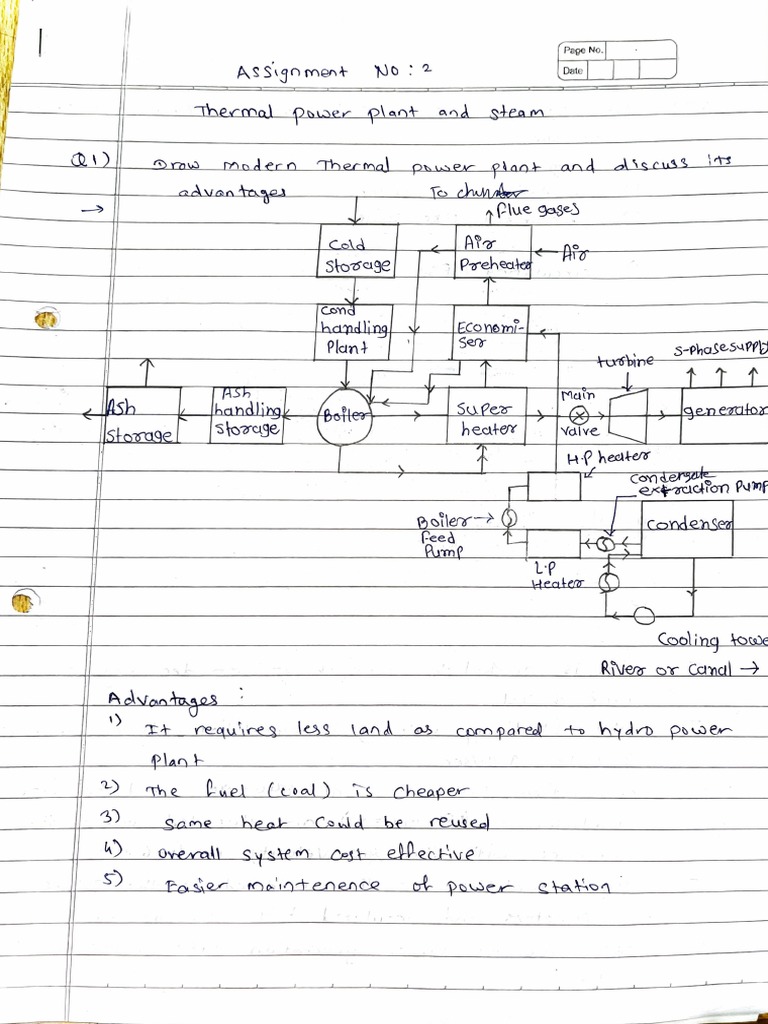 Page No.
Date
Assignment No : 2
Thermal power plant and steam
Q1) Draw modern Thermal power plant and discuss its
advantages
To
flue gases
Cold
Storage
Air
Preheater
Air
Cond
handling
Plant
Economi-
ser
turbine
S-phase supply
Ash
Storage
Ash
handling
storage
Boiler
Super
heater
Main
valve
generator
H.P heater
Condensate
extraction Pump
Boiler
feed
Pump
Condenser
L.P
Heater
Cooling towe
River or Canal →
Advantages :
1) It requires less land as compared to hydro power
plant
2) The fuel (coal) is cheaper
3) Same heat could be reused
4) Overall system cost effective
5) Easier maintenence of power station